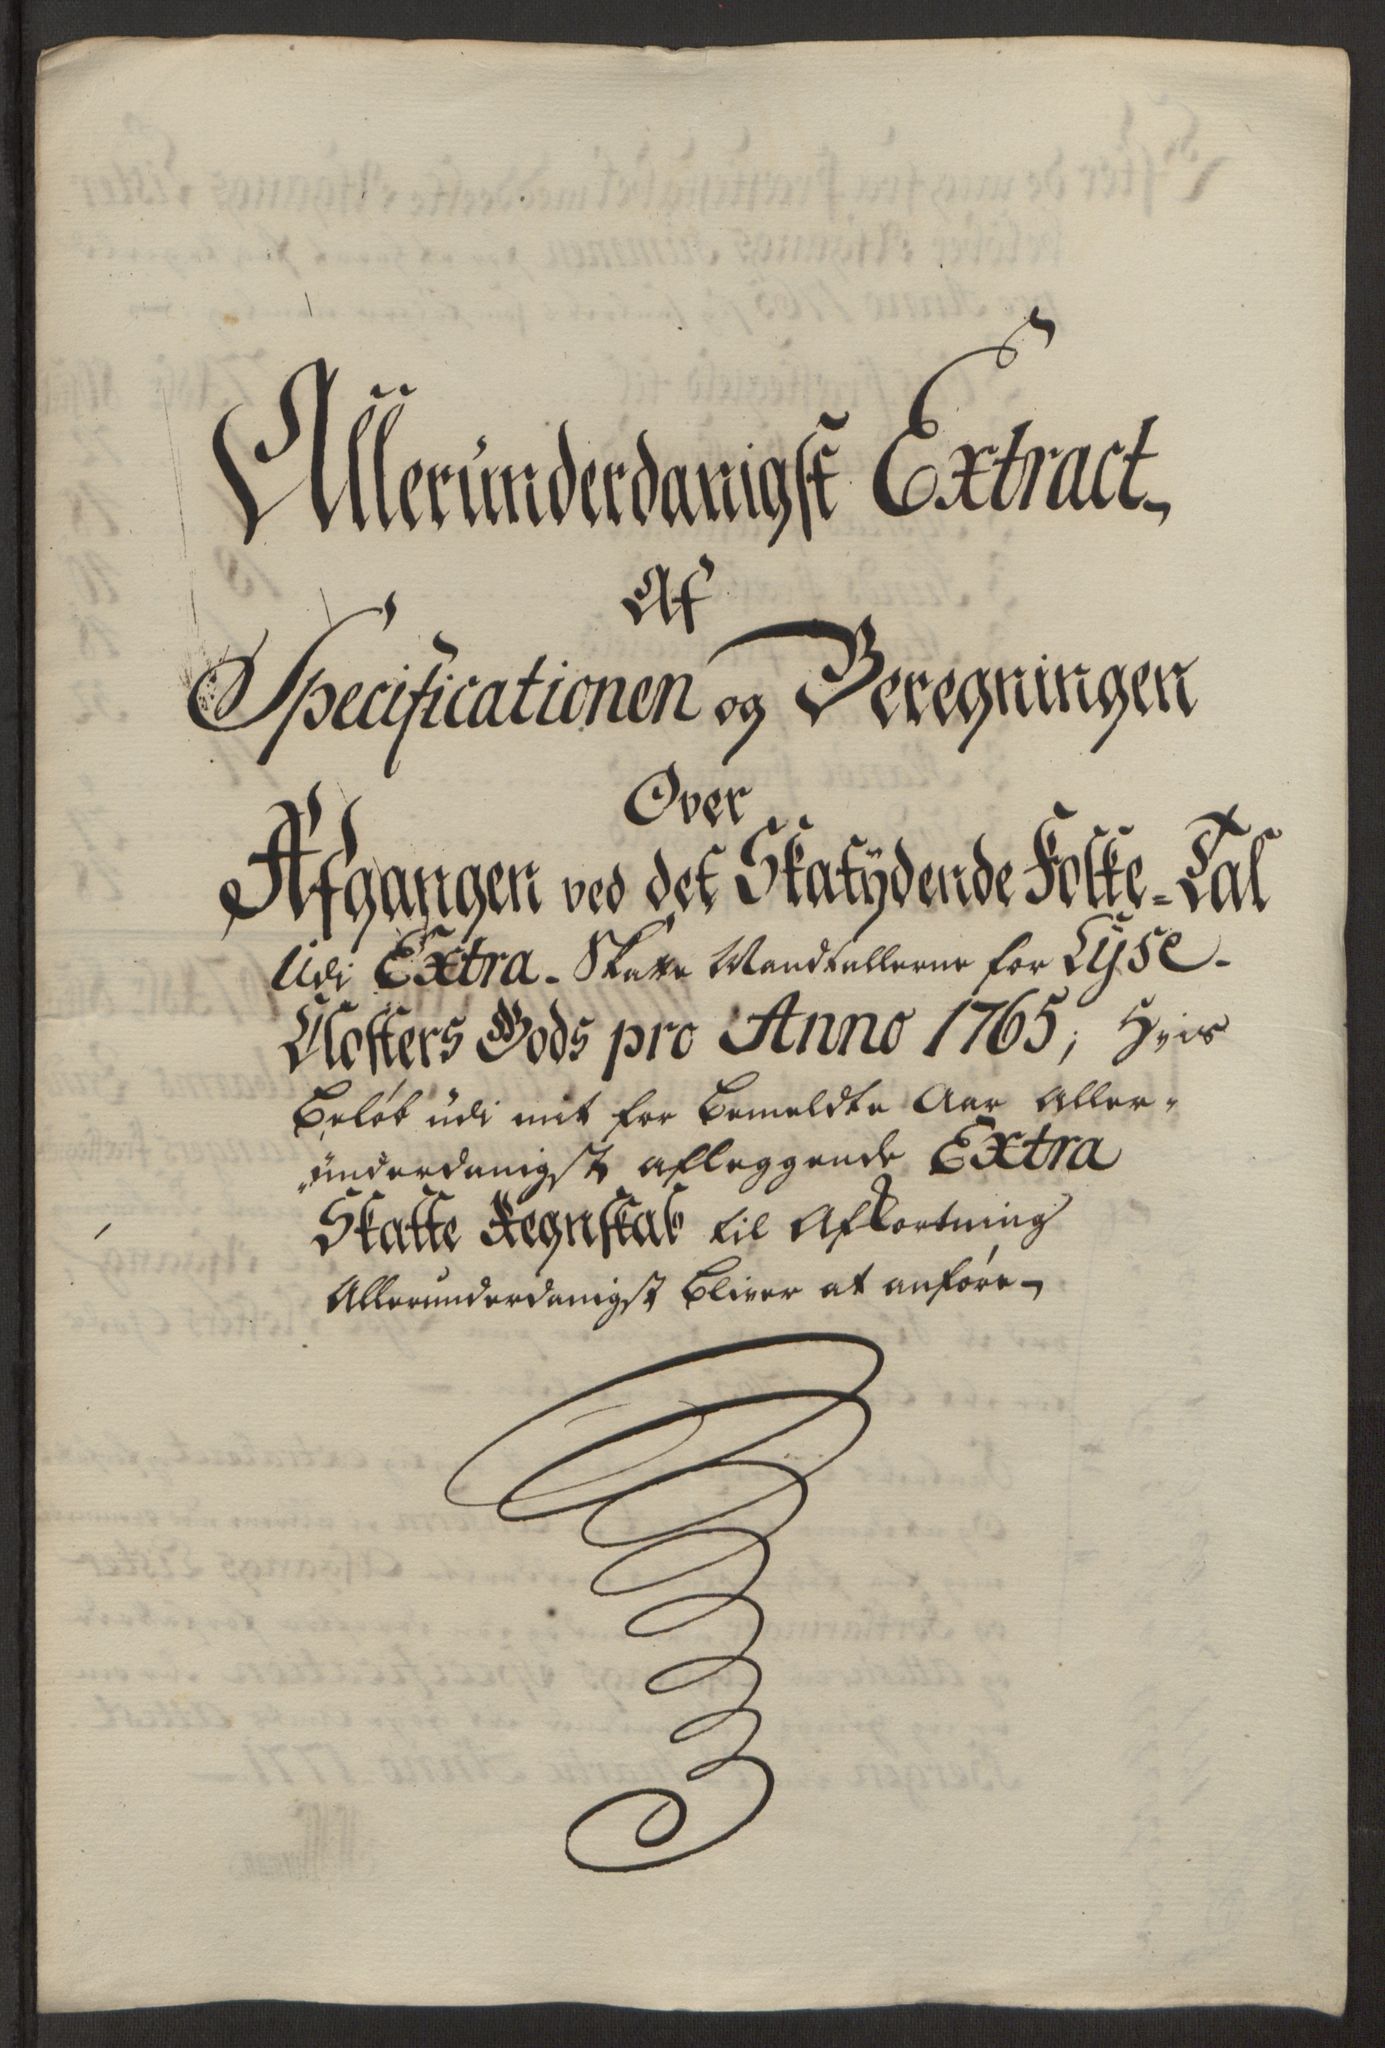 Allerunderdanigst Extract
Af
Specificationen og Beregningen
Over
Afgangen ved det Skatÿdende Folke-Tal
Udi Extra-Skatte Mandtallerne for Lyse-
Closters Gods pro Anno 1765; Hvis
Beløb udi mit for bemeldte Aar Aller-
underdanigst aflæggende Extra
Skatte Regnskab til Afkortning
Allerunderdanigst bliver at anføre